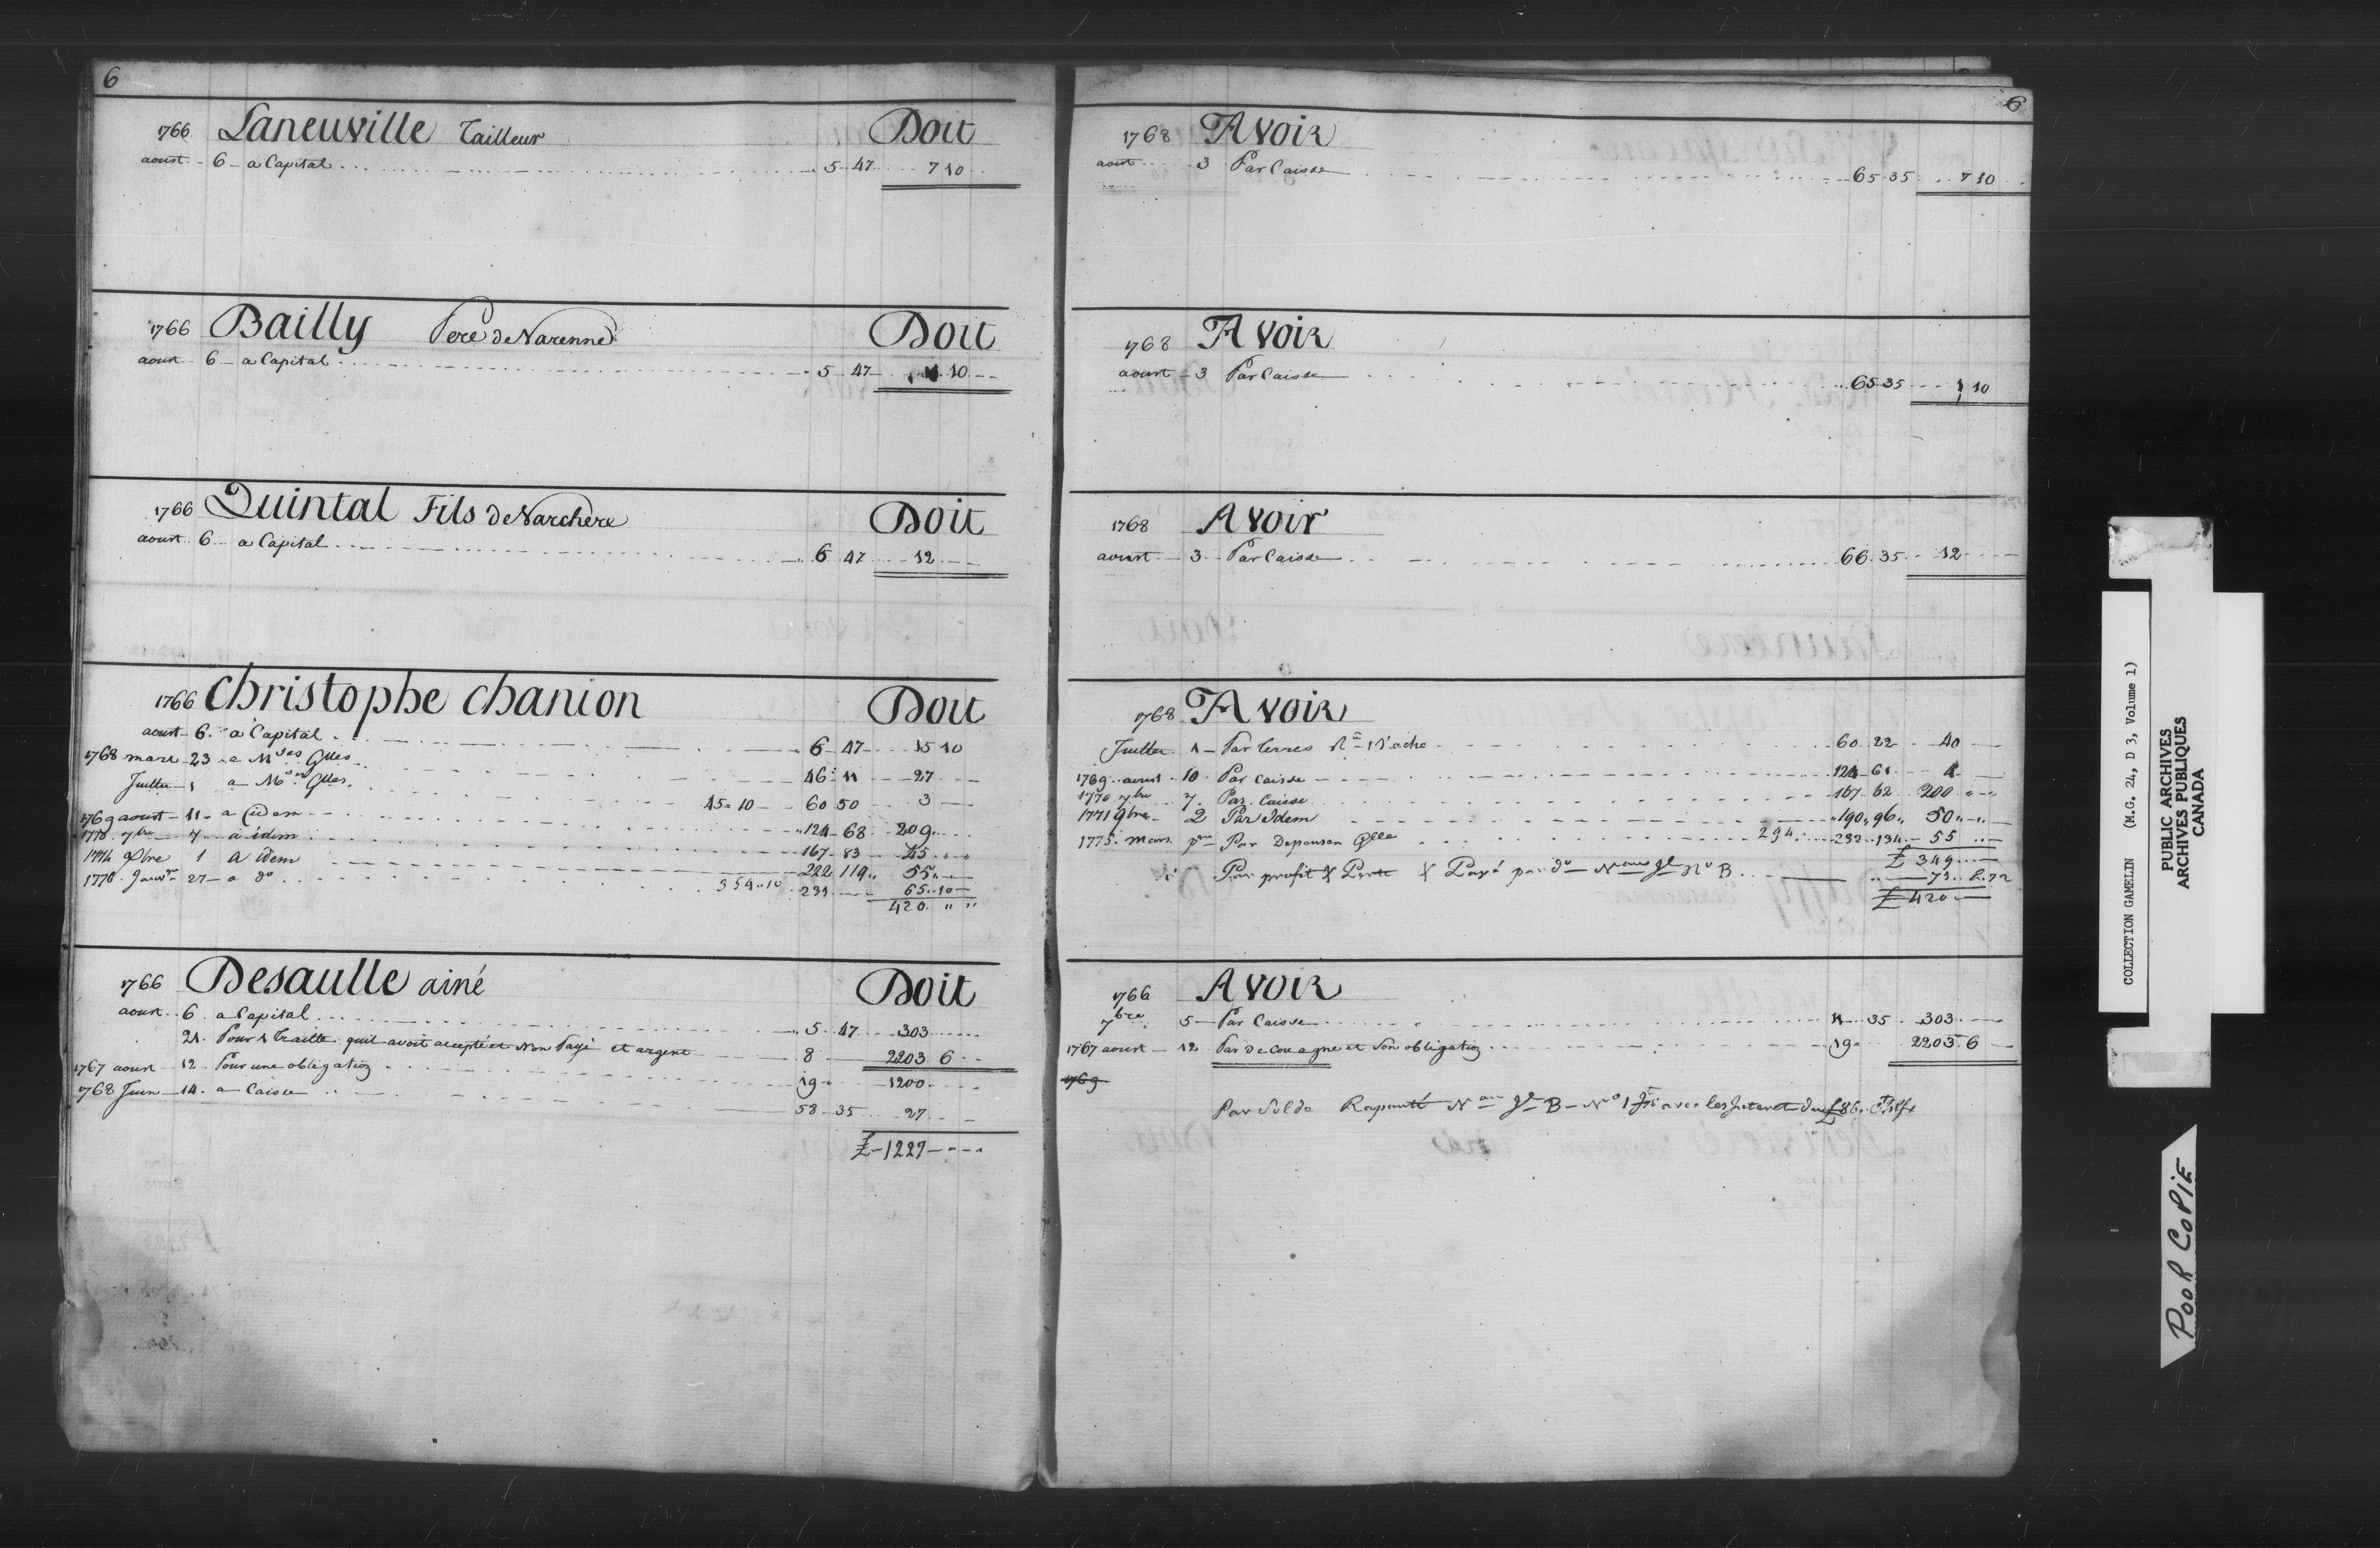 6
1766 Laneuville Tailleur Doit
aoust 6 a Capital 5 47 7 10
1766 Bailly Pere de Varenne Doit
aoust 6 a Capital 5 47 10
1766 Quintal Fils de Varchere Doit
aoust 6 a Capital 6 47 12
1766 Christophe Chanion Doit
aoust 6 a Capital 6 47 15 10
1768 mars 23 a Mses Glles 46 11 27
Juillet 1 a Mses Glles 45 10 60 50 3
1769 aoust 11 a idem 124 68 209
1770 7bre 7 a idem 167 83 45
1774 1 a idem 222 119 55
1776 Janvr 27 a do 354 10 231 65 10
420
1766 Desaulle ainé Doit
aoust 6 a Capital 5 47 303
21 Pour 1 traitte quil avoit accepté et Non Payé et argent 8 2203 6
1767 aoust 12 Pour une obligation 19 1200
1768 Juin 14 a Caisse 58 35 27
£ 1227
6
1768 Avoir
aoust 3 Par Caisse 65 35 7 10
1768 Avoir
aoust 3 Par Caisse 65 35 10
1768 Avoir
aoust 3 Par Caisse 66 35 12
1768 Avoir
Juillet 1 Par 60 22 40
1769 aoust 10 Par Caisse 124 61 4
1770 7bre 7 Par Caisse 167 62 200
1771 9bre 2 Par Idem 190 96 50
1775 mars Par Glle 294 232 134 55
£ 349
Par profit & Perte & Payé par do No B
£ 420
1766 Avoir
7bre 5 Par Caisse 11 35 303
1767 aoust 12 Par de Couagne et Son obligation 19 2203 6
1769
Par Solde B No 1 avec les Interet £86
COLLECTION GAMELIN (M.G. 24, D 3, Volume 1)
PUBLIC ARCHIVES
ARCHIVES PUBLIQUES
CANADA
POOR COPIE